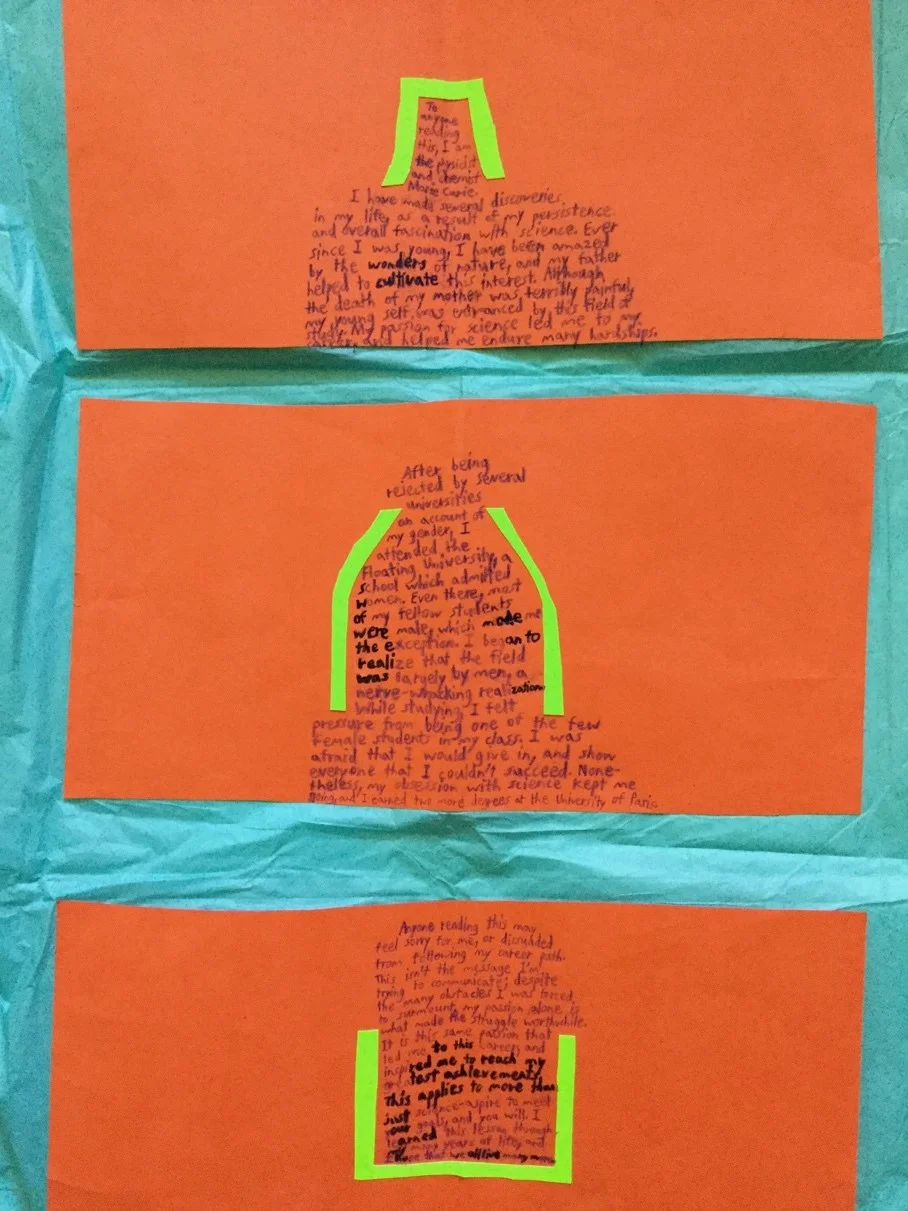 To
anyone
reading
this, I am
the physicist
and chemist
Marie Curie.
I have made several discoveries
in my life, as a result of my persistence
and overall fascination with science. Ever
since I was young, I have been amazed
by the wonders of nature, and my father
helped to cultivate this interest. Although
the death of my mother was terribly painful,
my young self was entranced by this field of
study. My passion for science led me to my
career, and helped me endure many hardships.
After being
rejected by several
universities
on account of
my gender, I
attended the
Floating University, a
school which admitted
women. Even there, most
of my fellow students
were male, which made me
the exception. I began to
realize that the field
was largely by men, a
nerve-wracking realization.
While studying, I felt
pressure from being one of the few
female student in my class. I was
afraid that I would give in, and show
everyone that I couldn't succeed. None-
theless, my obsession with science kept me
going, and I earned two more degrees at the University of Paris.
Anyone reading this may
feel sorry for me, or dissuaded
from following my career path.
This isn't the message I'm
trying to communicate; despite
the many obstacles I was forced
to surmount, my passion alone is
what made the struggle worthwhile.
It is this same passion that
led me to this career, and
inspired me to reach my
greatest achievements.
This applies to more than
just science-aspire to meet
your goals, and you will. I
learned this lesson through
my many years of life, and
I hope that we all live many more.